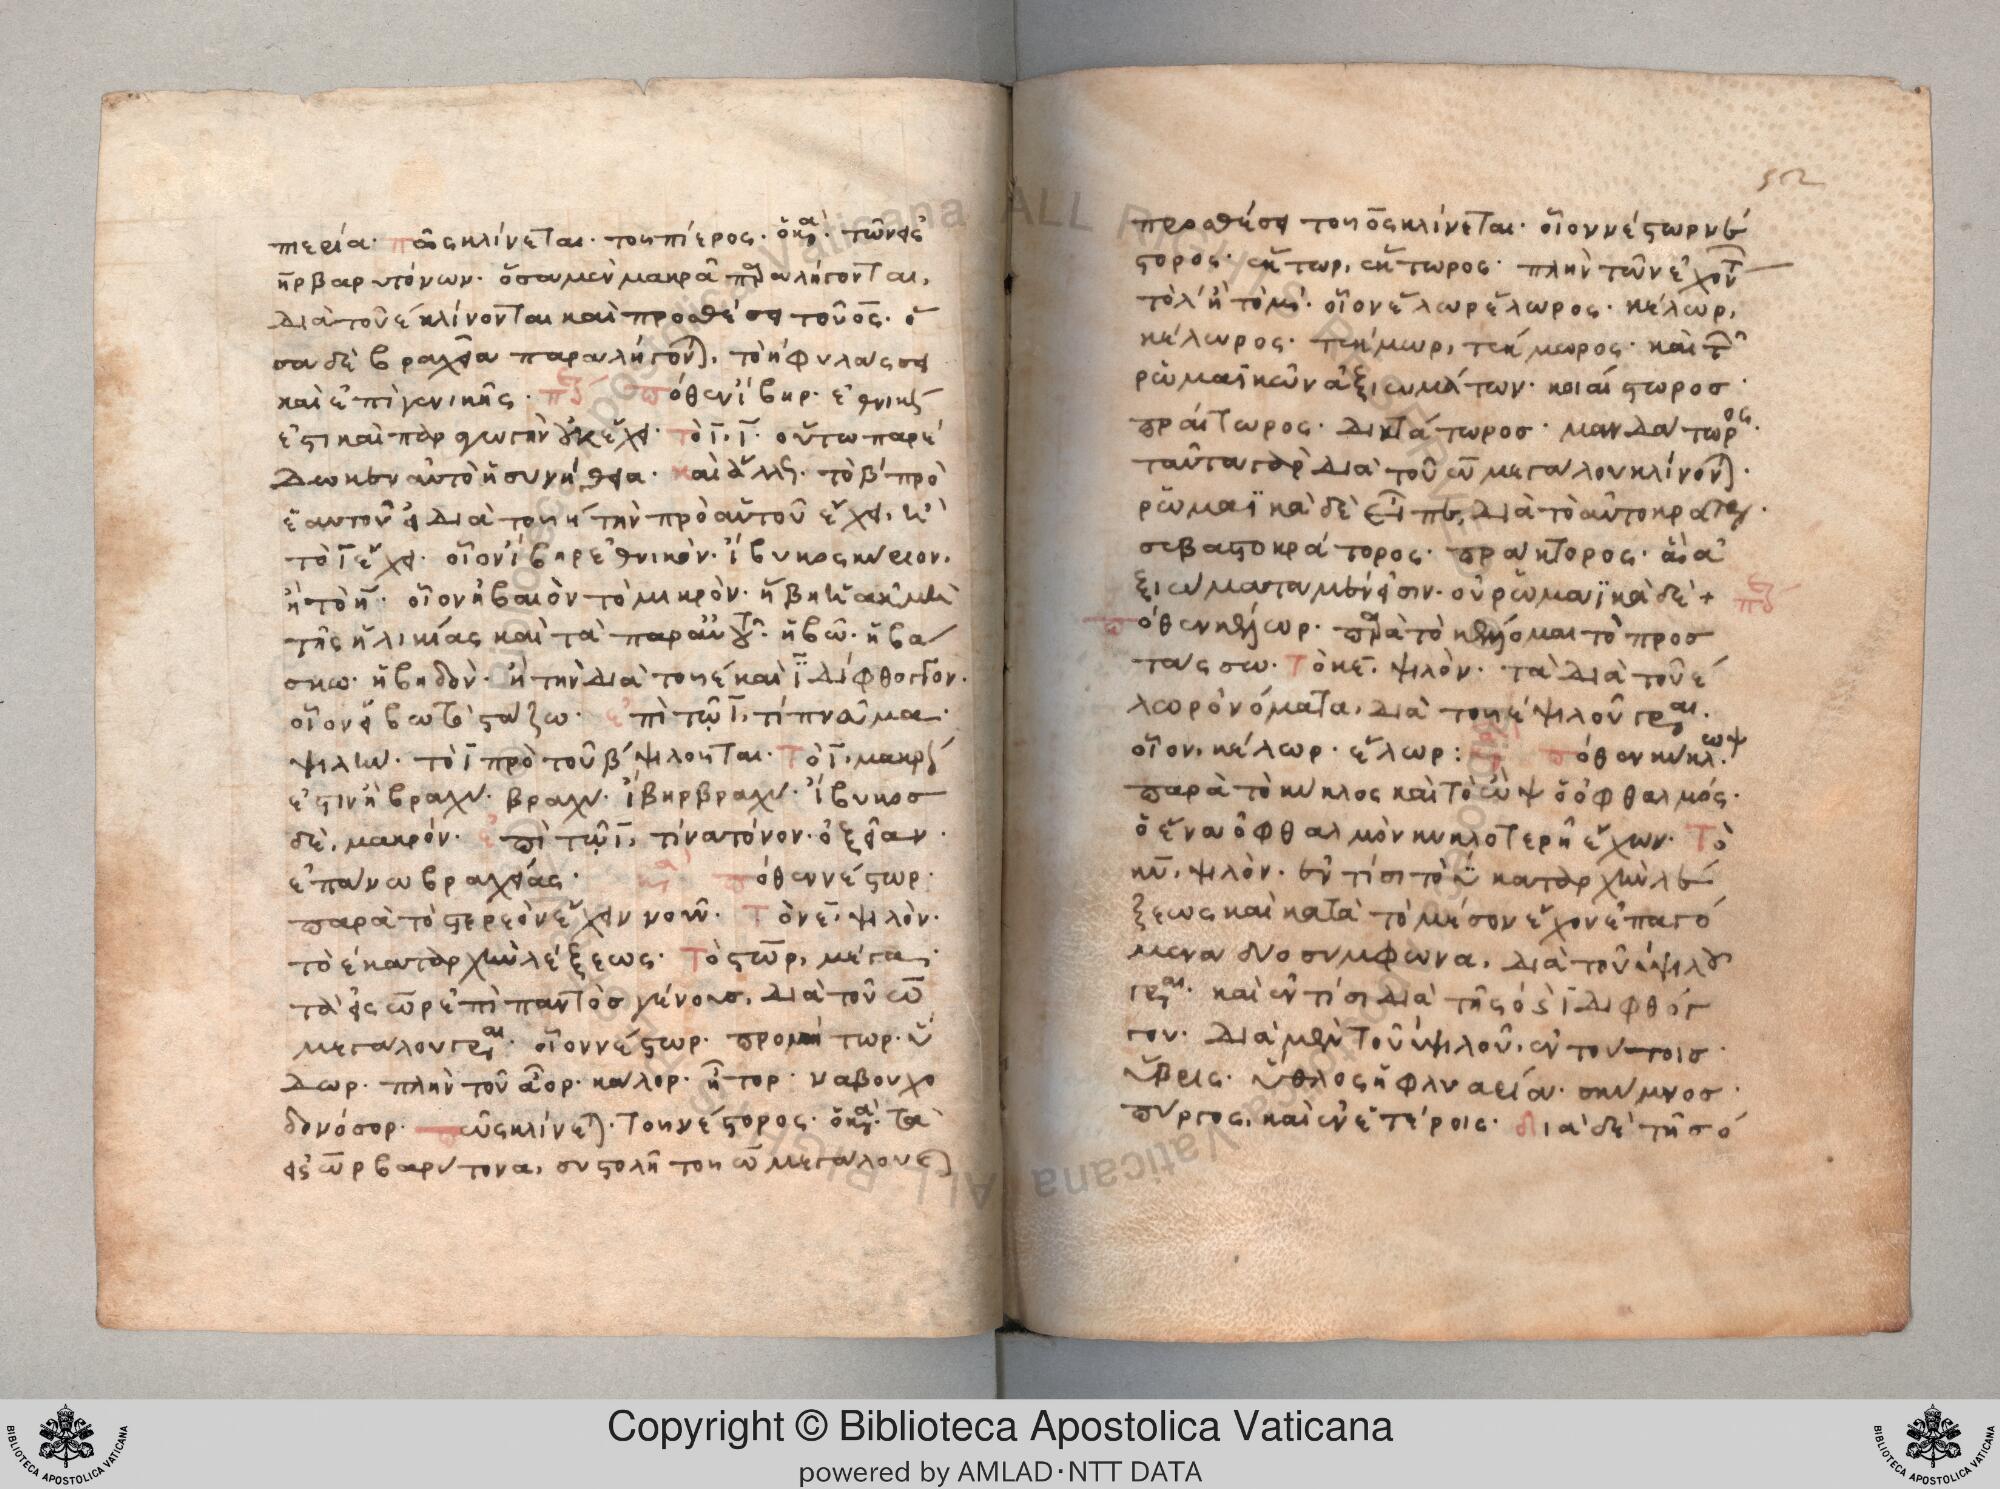 πιερία· πῶς κλίνεται· τοῦ πίερος· ὁ κα(νών)· τῶν εἰς
ηρ βαρυτόνων· ὅσα μὲν μακρᾶ παραλήγονται,
διὰ τοῦ ε κλίνονται καὶ προσθέσει τοῦ ος· ὅ
σα δὲ βραχεῖα παραλήγοντ(αι), τὸ η φυλάσσει
καὶ ἐπὶ γενικῆς· πόθεν ἴβηρ· ἐθνικόν
ἐστι καὶ παραγωγὴν οὐκ ἔχει· τὸ ῑ, ῑ· οὕτω παρέ
δωκεν αὐτὸ ἡ συνήθεια· καὶ ἄλλως· τὸ β πρὸ
ἑαυτοῦ ἢ διὰ τοῦ η τὴν πρὸ αὐτοῦ ἔχει, ἢ
τὸ ῑ ἔχει· οἷον ἴβηρ ἐθνικόν· ἴβυκος κύριον,
ἢ τὸ η̄· οἷον ἠβαιὸν τὸ μικρόν· ἥβη ἡ ἀκμὴ
τῆς ἡλικίας καὶ τὰ παρ' αὐτοῦ· ἡβῶ· ἡβά
σκω· ἡβηδόν· ἢ τὴν διὰ τοῦ ε καὶ ῑ δίφθογγον·
οἷον εἴβω τὸ στάζω· ἐπὶ τῷ ῑ, τί πνεῦμα·
ψιλήν· τὸ ῑ πρὸ τοῦ β ψιλοῦται· τὸ ῑ, μακρόν
ἐστιν ἢ βραχύ· βραχύ· ἴβηρ βραχύ· ἴβυκος
δὲ, μακρόν· ἐπὶ τῷ ῑ, τίνα τόνον· ὀξεῖαν·
ἐπάνω βραχείας· πόθεν νέστωρ·
παρὰ τὸ στερεὸν ἔχειν νοῦν· τὸ νε̄, ψιλόν·
τὸ ε κατ' ἀρχὴν λέξεως· τὸ στωρ, μέγα·
τὰ εἰς ωρ ἐπὶ παντὸς γένους, διὰ τοῦ ω
μεγάλου γράφεται· οἷον νέστωρ· προμήτωρ· ὕ
δωρ· πλὴν τοῦ ἄορ· κάλορ· ἦτορ· ναβουχο
δονόσορ· πῶς κλίνετ(αι)· τοῦ νέστορος· ὁ κα(νών)· τὰ
εἰς ωρ βαρύτονα, συστολῇ τοῦ ω μεγάλου καὶ
προσθέσει τοῦ ος κλίνεται· οἷον νέστωρ νέ
στορος· ῥήτωρ, ῥήτορος· πλὴν τῶν ἐχόντ(ων)
τὸ λ ἢ τὸ μ· οἷον ἔλωρ ἔλωρος· κέλωρ,
κέλωρος· τεκμωρ, τέκμωρος· καὶ τῶν
ῥωμαϊκῶν ἀξιωμάτων· κοιαίστωρος·
πραίτωρος· δικτάτωρος· μανδάτωρος·
ταῦτα γὰρ διὰ τοῦ ω μεγάλου κλίνοντ(αι)·
ῥωμαϊκὰ δὲ εἶπεν, διὰ τὸ αὐτοκράτορος
σεβαστοκράτορος· πράκτορος· ἃ ἀ
ξιώματα μέν εἰσιν· οὐ ῥωμαϊκὰ δέ +
πόθεν κέλωρ· παρὰ τὸ κέλομαι τὸ προσ
τάσσω· τὸ κε̄, ψιλόν· τὰ διὰ τοῦ ε
λωρ ὀνόματα, διὰ τοῦ ε ψιλοῦ γράφεται·
οἷον, κέλωρ· ἔλωρ: πόθεν κύκλωψ·
παρὰ τὸ κύκλος καὶ τὸ ὢψ ὁ ὀφθαλμός·
ὁ ἕνα ὀφθαλμὸν κυκλοτερῆ ἔχων· τὸ
κῡ, ψιλόν· ἔν τισι τὸ ϋ κατ' ἀρχὴν λέ
ξεως καὶ κατὰ τὸ μέσον ἔχον ἐπαγό
μενα δύο σύμφωνα, διὰ τοῦ υ ψιλοῦ
γράφεται· καὶ ἔν τισι διὰ τῆς ο ϊ διφθόγ
γου· διὰ μὲν τοῦ υ ψιλοῦ, ἐν τούτοις·
ὕβρις· ὕθλος ἡ φλυαρία· σκύμνος·
πύργος, καὶ ἐν ἑτέροις· διὰ δὲ τῆς ο
Copyright © Biblioteca Apostolica Vaticana
powered by AMLAD·NTT DATA